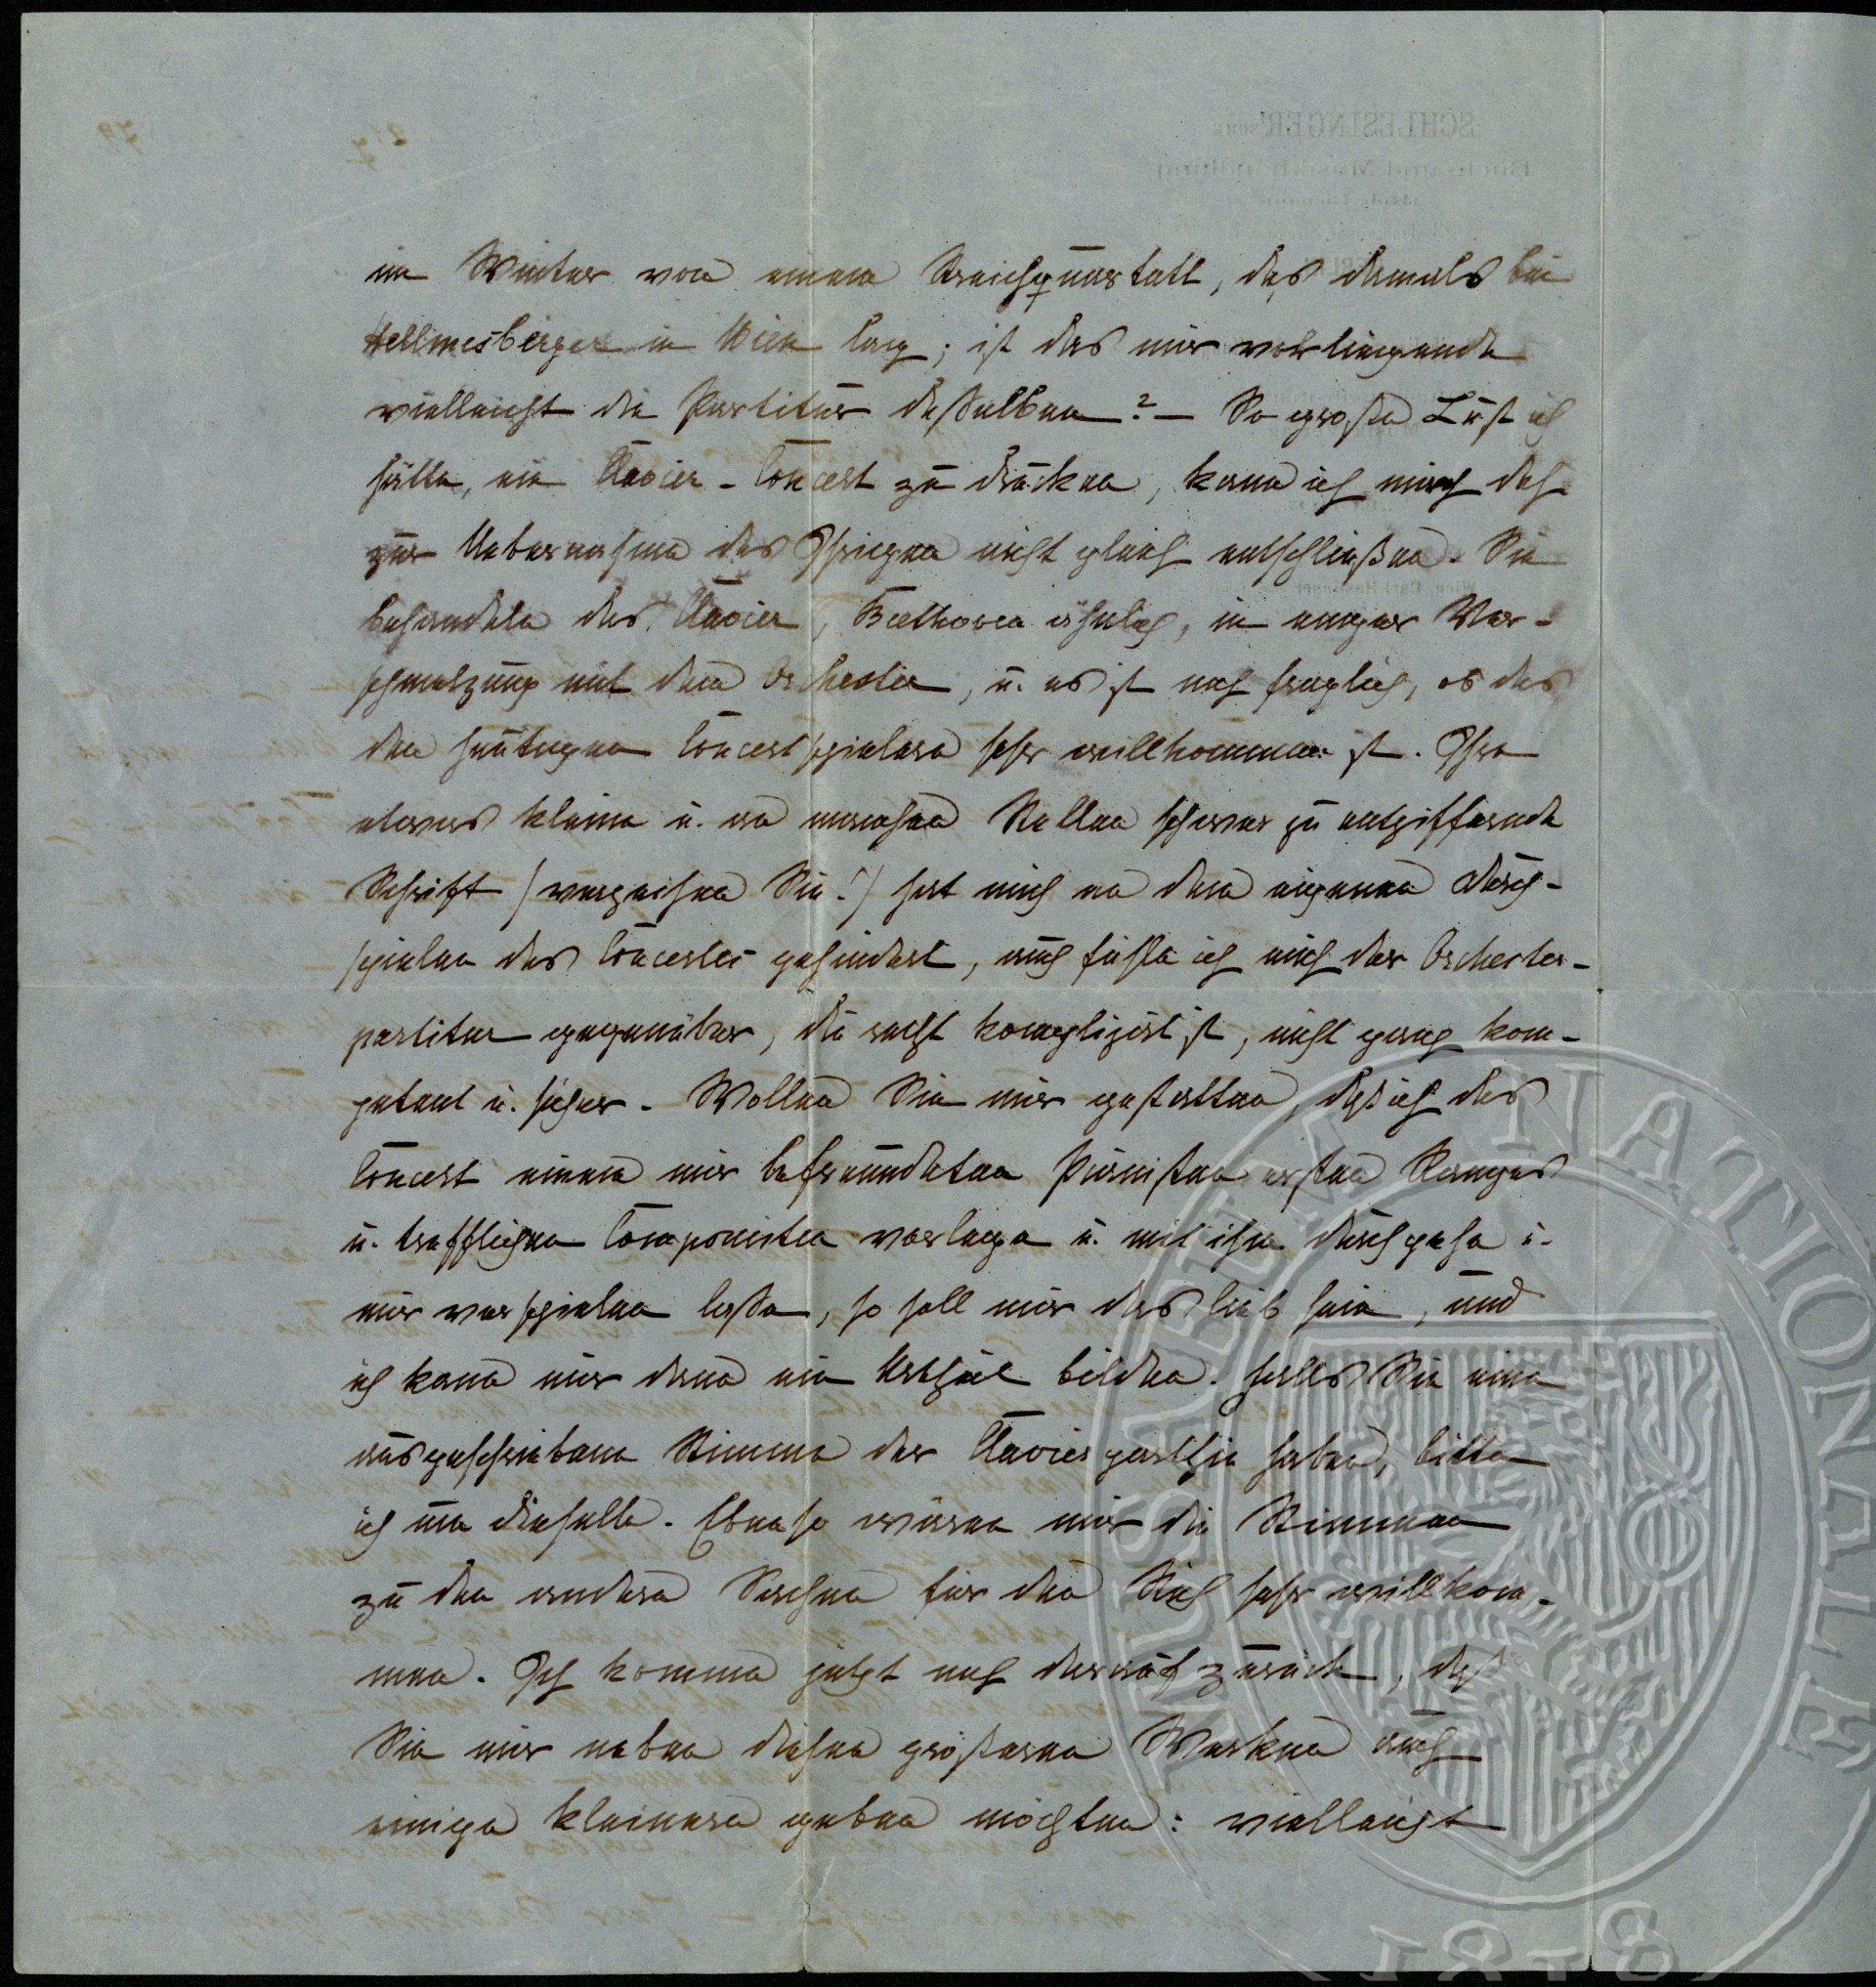 im Winter von einem Streichquartett, das damals bei
Hellmesberger in Wien lag; ist das mir vorliegende
vielleicht die Partitur deßelben? — So große Lust ich
hätte, ein Clavier-Concert zu drucken, kann ich mich doch
zur Uebernahme des Ihrigen nicht gleich entschließen. Sie
behandeln das Clavier, Beethoven ähnlich, in enger Ver-
schmelzung mit dem Orchester, u. es ist noch fraglich, ob das
den heutigen Concertspielern sehr willkommen ist. Ihre
etwas kleine u. an manchen Stellen schwer zu entziffernde
Schrift (verzeihen Sie!) hat mich an dem eigenen Durch-
spielen des Concertes gehindert, auch fühle ich mich der Orchester-
partitur gegenüber, die recht komplizirt ist, nicht genug kom-
petent u. sicher. Wollen Sie mir gestatten, daß ich das
Concert einem mir befreundeten Pianisten ersten Ranges
u. trefflichen Componisten vorlege u. mit ihm durchgehe u.
mir vorspielen laße, so soll mir das lieb sein, und
ich kann mir dann ein Urtheil bilden. Falls Sie eine
ausgeschriebene Stimme der Clavierparthie haben, bitte
ich um dieselbe. Ebenso wären mir die Stimmen
zu den andern Sachen für den Stich sehr willkom-
men. Ich komme jetzt noch darauf zurück, daß
Sie mir neben diesen größeren Werken auch
einige kleinere geben möchten: vielleicht
SCHLESINGER'sche
Buch- und Musikhandlung
Wien, Carl Haslinger
MUSAEUM NATIONALE
1818